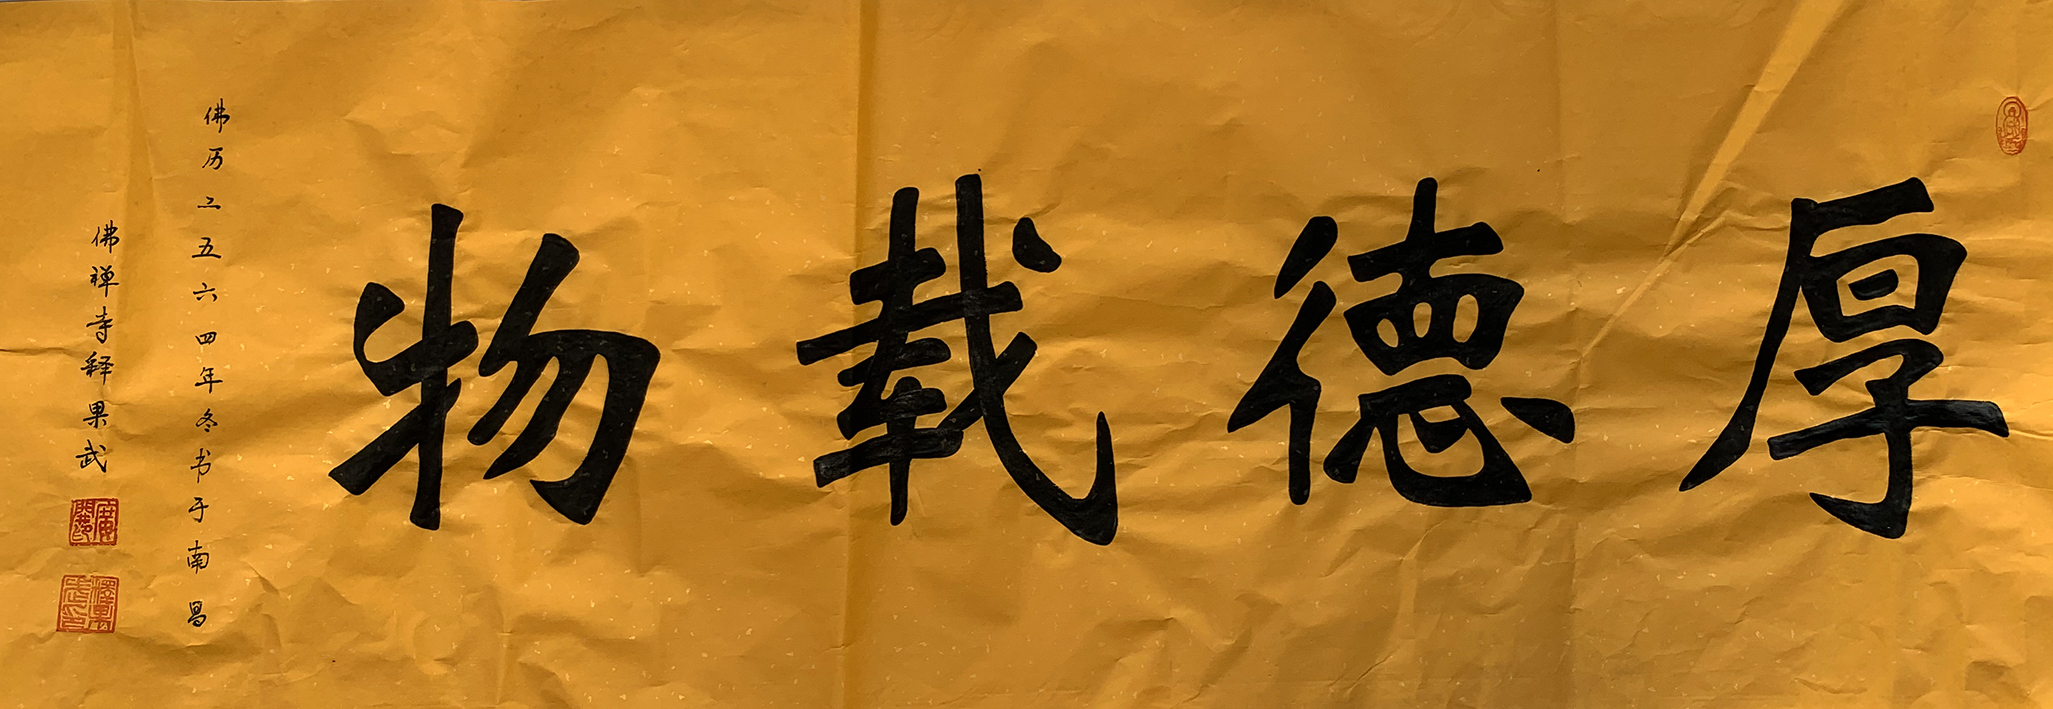 厚德载物
佛历二五六四年冬书于南昌
佛禅寺释果武